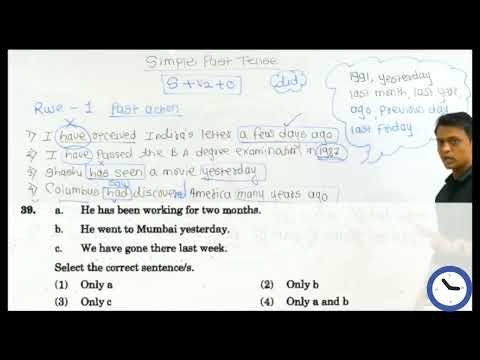 Simple Past Tense
S + V2 + O
did
1991, yesterday
last month, last year
ago, previous day
last Friday
Rule - 1 Past action
1) I have received Indira's letter a few days ago
2) I have passed the B A degree examination in 1982
3) Shashi has seen a movie yesterday
saw
4) Columbus had discovered America many years ago
39. a. He has been working for two months.
b. He went to Mumbai yesterday.
c. We have gone there last week.
Select the correct sentence/s.
(1) Only a (2) Only b
(3) Only c (4) Only a and b